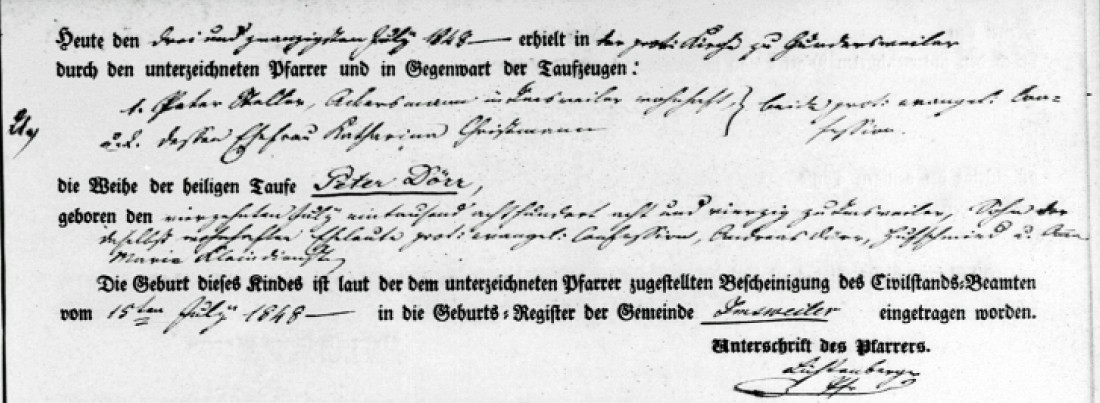 Heute den drei und zwanzigsten July 1848 — erhielt in der prot. Kirche zu Gundersweiler
durch den unterzeichneten Pfarrer und in Gegenwart der Taufzeugen:
1. Peter Keller, Ackersmann in Imsweiler wohnhaft, } beide prot. evangel. Con-
u. 2. dessen Ehefrau Katharina Christmann fession.
die Weihe der heiligen Taufe Peter Dörr,
geboren den vierzehnten July eintausend achthundert acht und vierzig zu Imsweiler, Sohn der
daselbst wohnhaften Eheleute prot. evangel. Confession, Andreas Dörr, Hufschmied u. Anna
Maria Kleindienst
Die Geburt dieses Kindes ist laut der dem unterzeichneten Pfarrer zugestellten Bescheinigung des Civilstands-Beamten
vom 15ten July 1848 — in die Geburts-Register der Gemeinde Imsweiler eingetragen worden.
Unterschrift des Pfarrers.
Lichtenberger
Pfr